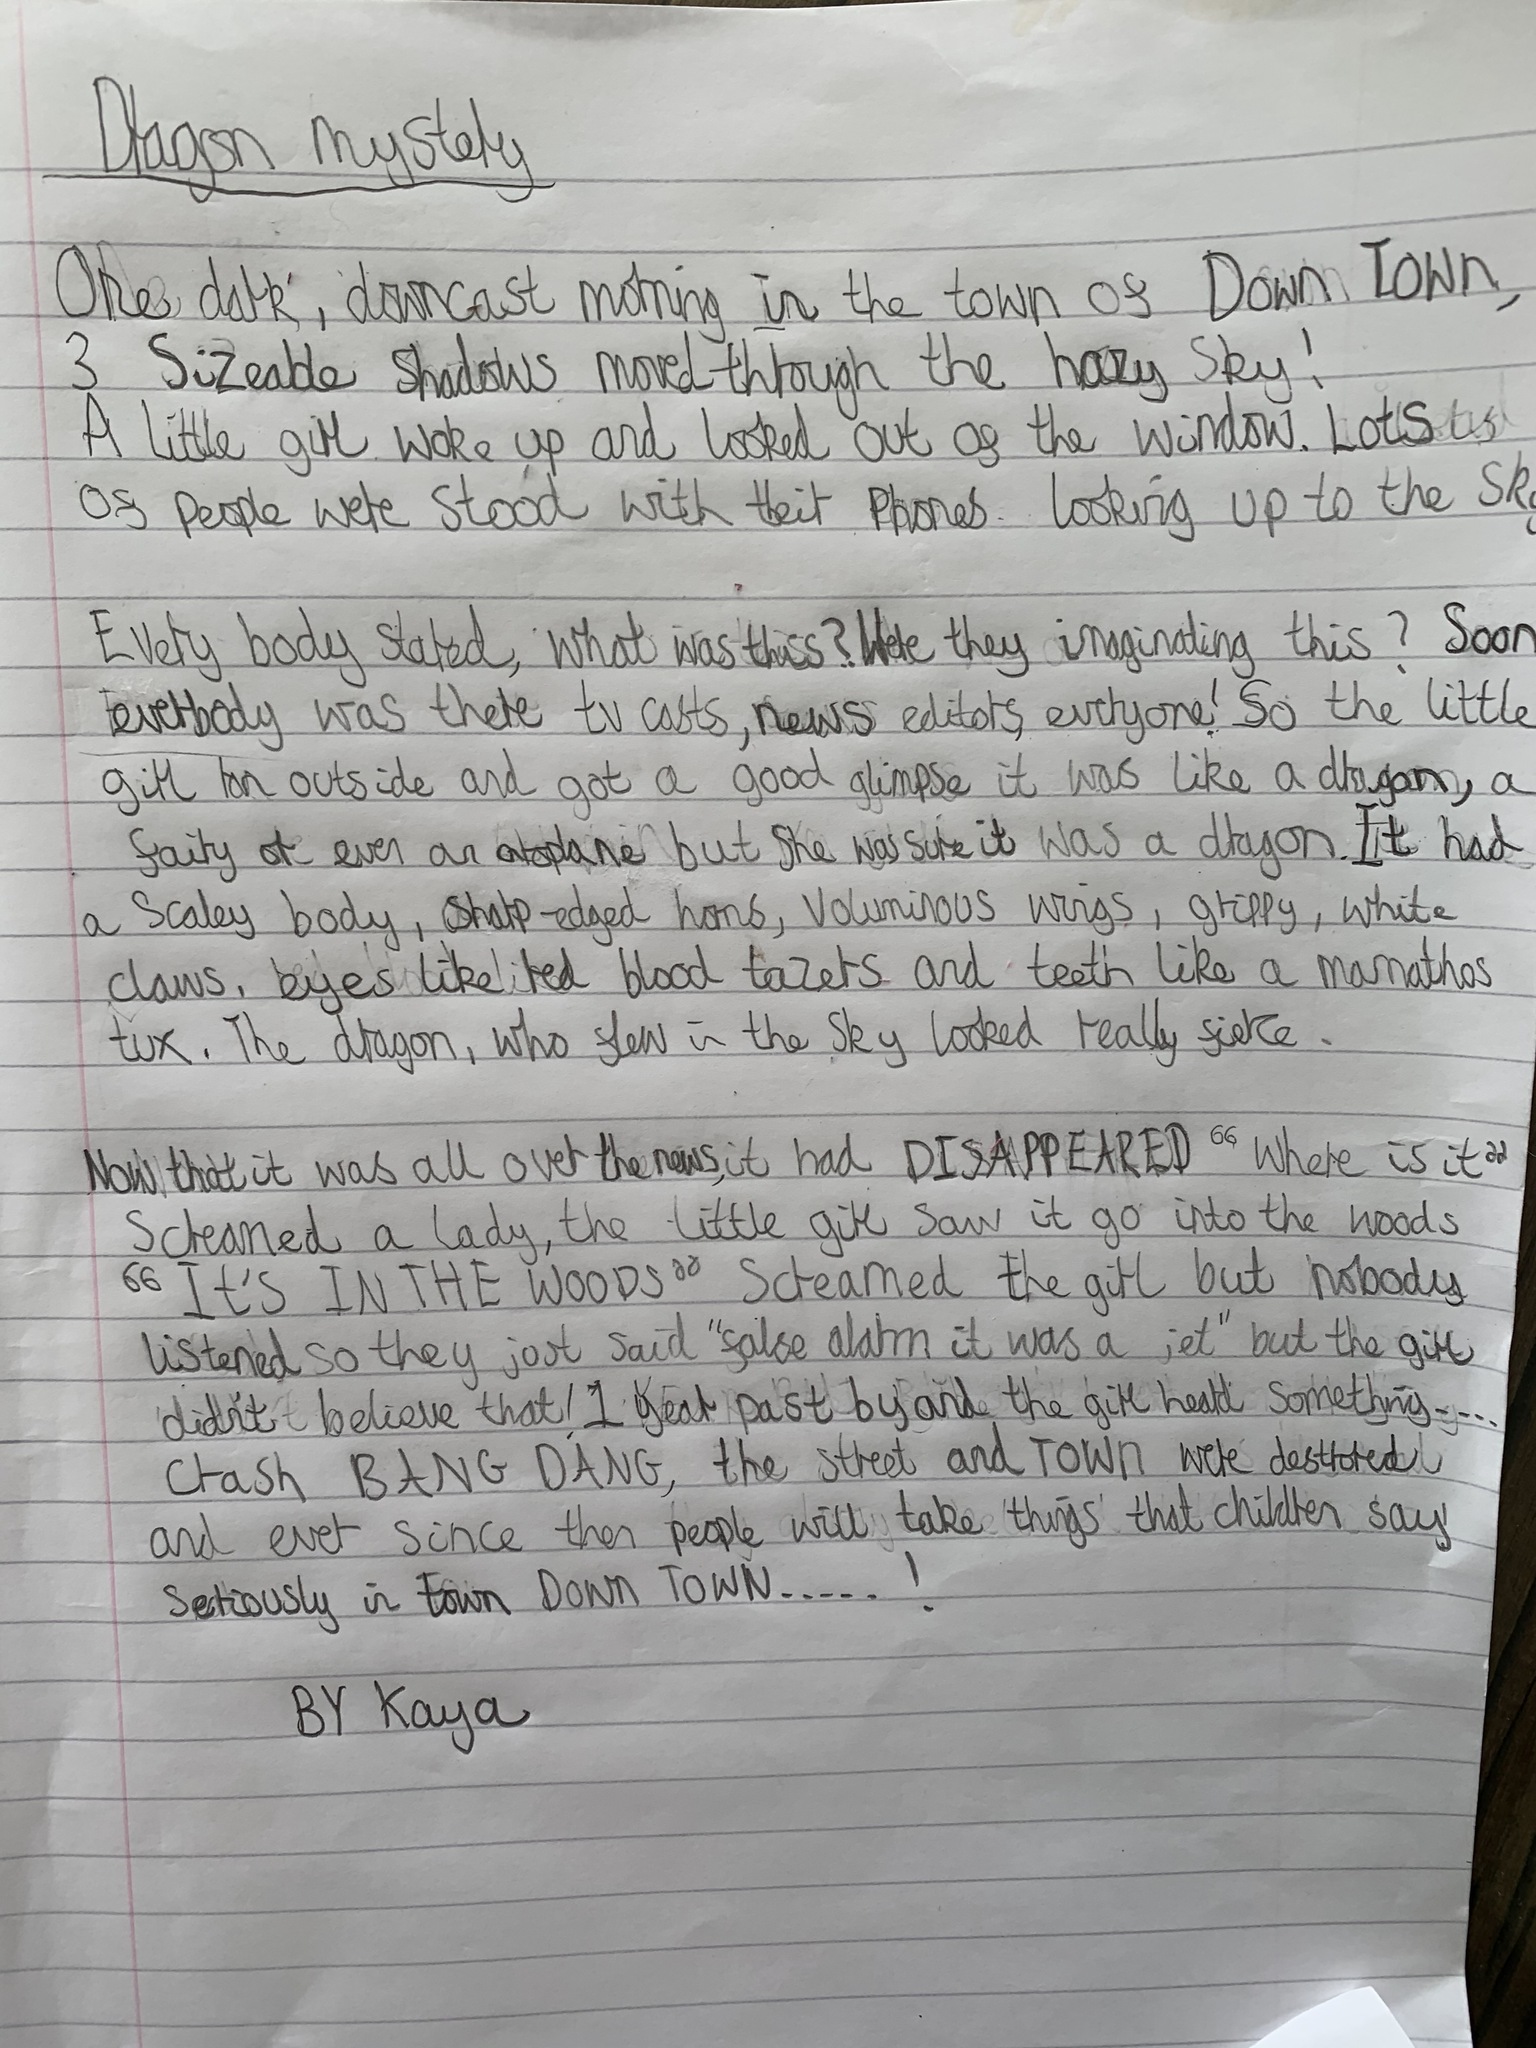 Dragon mystery
One dark, downcast morning in the town of Down Town,
3 Sizeable Shadows moved through the hazy Sky!
A little girl woke up and looked out of the window. Lots
of people were stood with their Phones. looking up to the Sky
Every body stared, what was this? Were they imaginating this? Soon
everbody was there tv casts, news editors, everyone! So the little
girl ran outside and got a good glimpse it was like a dragon, a
fairy or even an but She was sure it was a dragon. It had
a Scaley body, sharp-edged horns, Voluminous wings, grippy, white
claws, eyes like red blood lazers and teeth like a mamathos
tux. The dragon, who flew in the Sky looked really fierce.
Now that it was all over the news, it had DISAPPEARED "Where is it"
Screamed a lady, the little girl saw it go into the woods
"It'S IN THE WOODS" Screamed the girl but nobody
listened so they just said "false alarm it was a jet" but the girl
didn't believe that! 1 year past by and the girl heard something....
Crash BANG DANG, the street and TOWN were destrored
and ever since then people will take things that children say
seriously in town DOWN TOWN.....!
BY Kaya